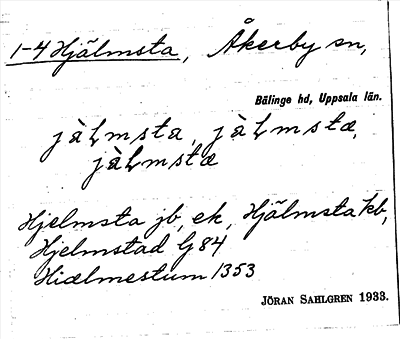 1-4 Hjälmsta, Åkerby sn,
Bälinge hd, Uppsala län.
jàⱡmsta, jàⱡmstæ,
jàⱡmstæ
Hjelmsta jb, ek, Hjälmsta kb,
Hjelmstad G 84
Hiælmestum 1353
JÖRAN SAHLGREN 1933.